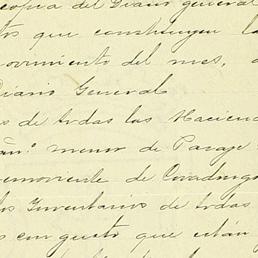 copia del Diario general
tos que constituyen la
movimiento del mes, a
Diario General
s de todas las Haciend
menor de Paraje
emoviente de Covadonga
los Inventarios de todas
s con gusto que están